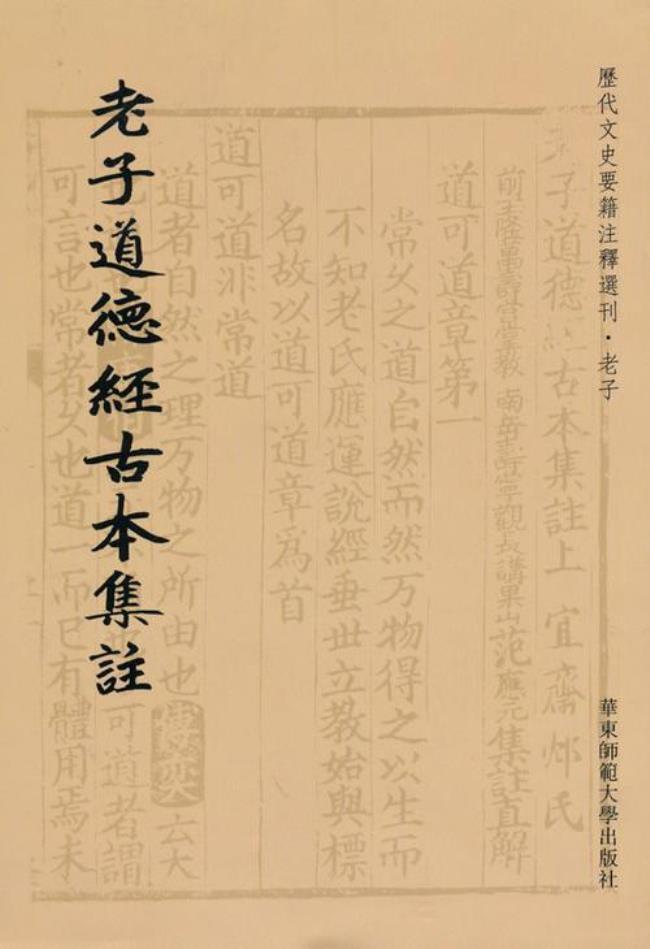 歷代文史要籍注釋選刊·老子
華東師範大學出版社
老子道德經古本集註
子道德經古本集註上 宜齋 氏
前玉隆萬壽宮掌教 南岳壽寧觀長講果山范應元集註直解
道可道章第一
常久之道自然而然万物得之以生而
不知老氏應運說經垂世立教始與標
名故以道可道章爲首
道可道非常道
道者自然之理万物之所由也 云大
可道者謂
可言也常者久也道一而已有體用焉未